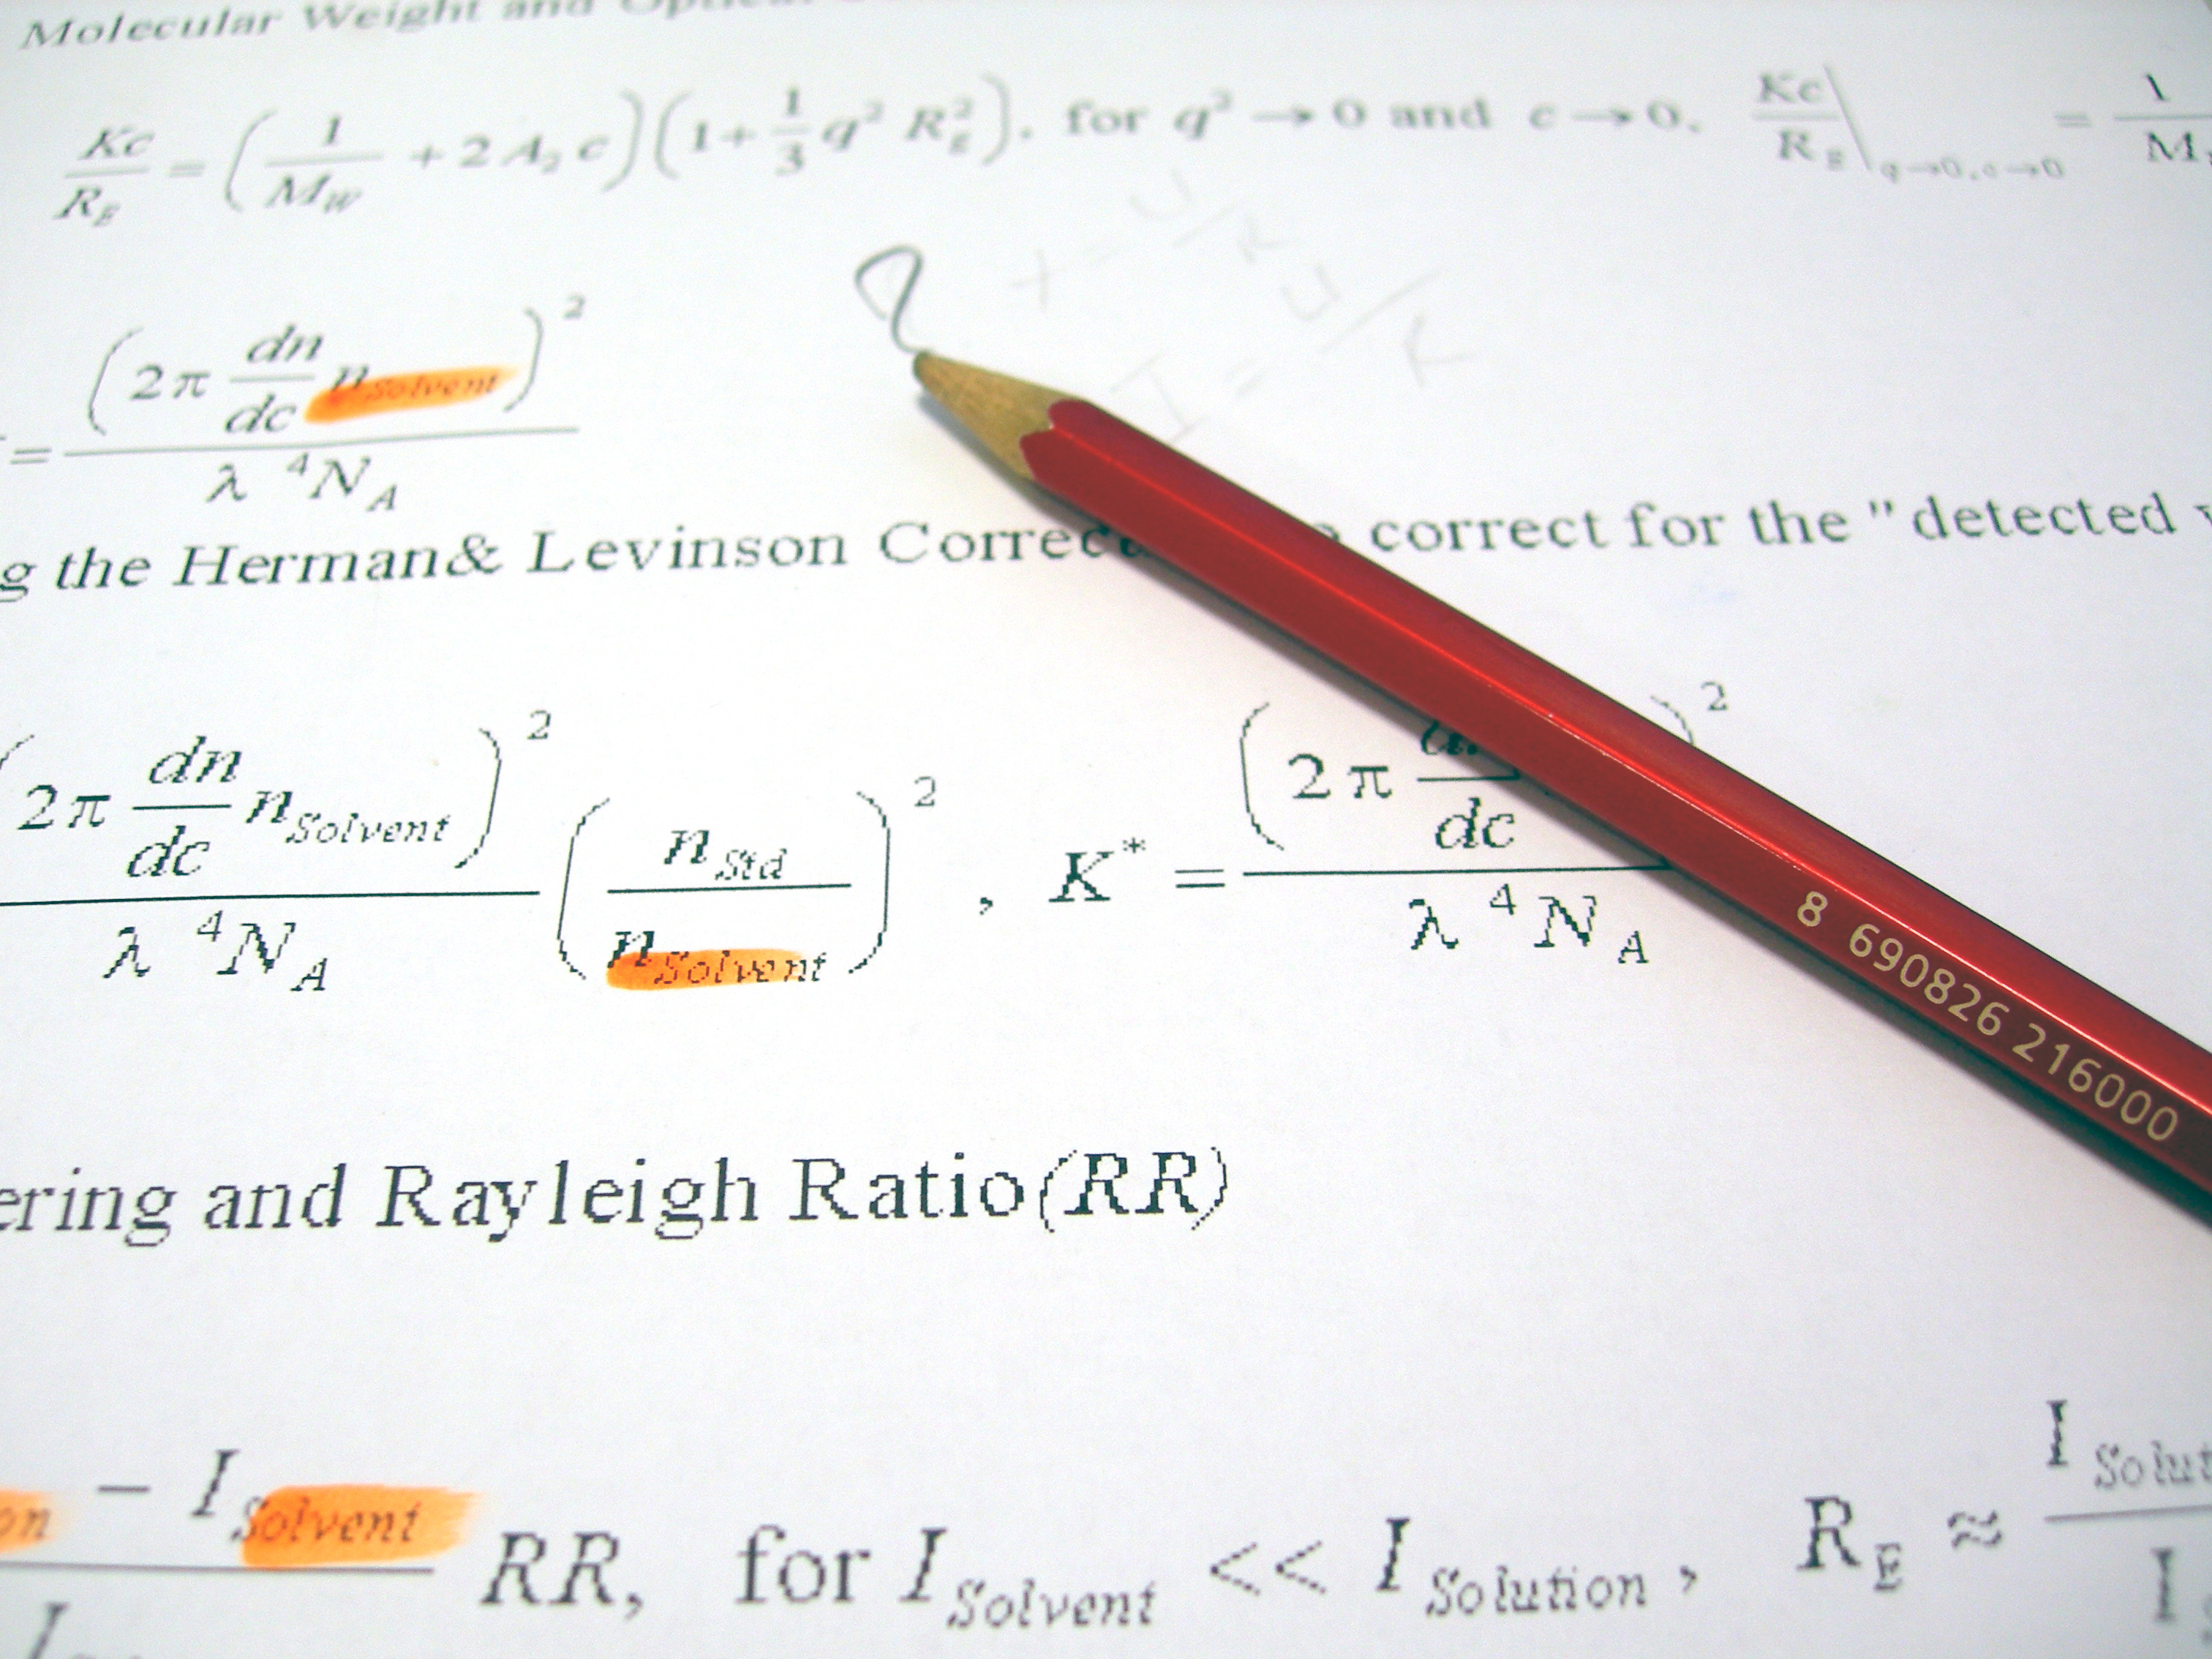 Molecular Weight and Optical
Kc/R_E = (1/M_W + 2 A_2 c)(1 + 1/3 q² R_g²), for q² → 0 and c → 0, Kc/R_E |q→0, c→0 = 1/M
= (2π dn/dc n_Solvent)² / λ⁴N_A
g the Herman& Levinson Correct correct for the "detected
(2π dn/dc n_Solvent)² / λ⁴N_A (n_Std / n_Solvent)², K* = (2π /dc )² / λ⁴N_A
8 690826 216000
ering and Rayleigh Ratio(RR)
on − I_Solvent / I RR, for I_Solvent << I_Solution, R_E ≈ I_Solut / I
I = U/R